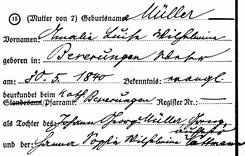 (15) (Mutter von 2) Geburtsname: Müller
Vornamen: Amalie Luise Wilhelmine
geboren in: Beverungen
am 30.5.1840 Bekenntnis: evangl
beurkundet beim Kath
Standesamt/Pfarramt: Beverungen Register Nr. —
als Tochter des: Johann Georg Müller
und der: Sophie Wilhelmine